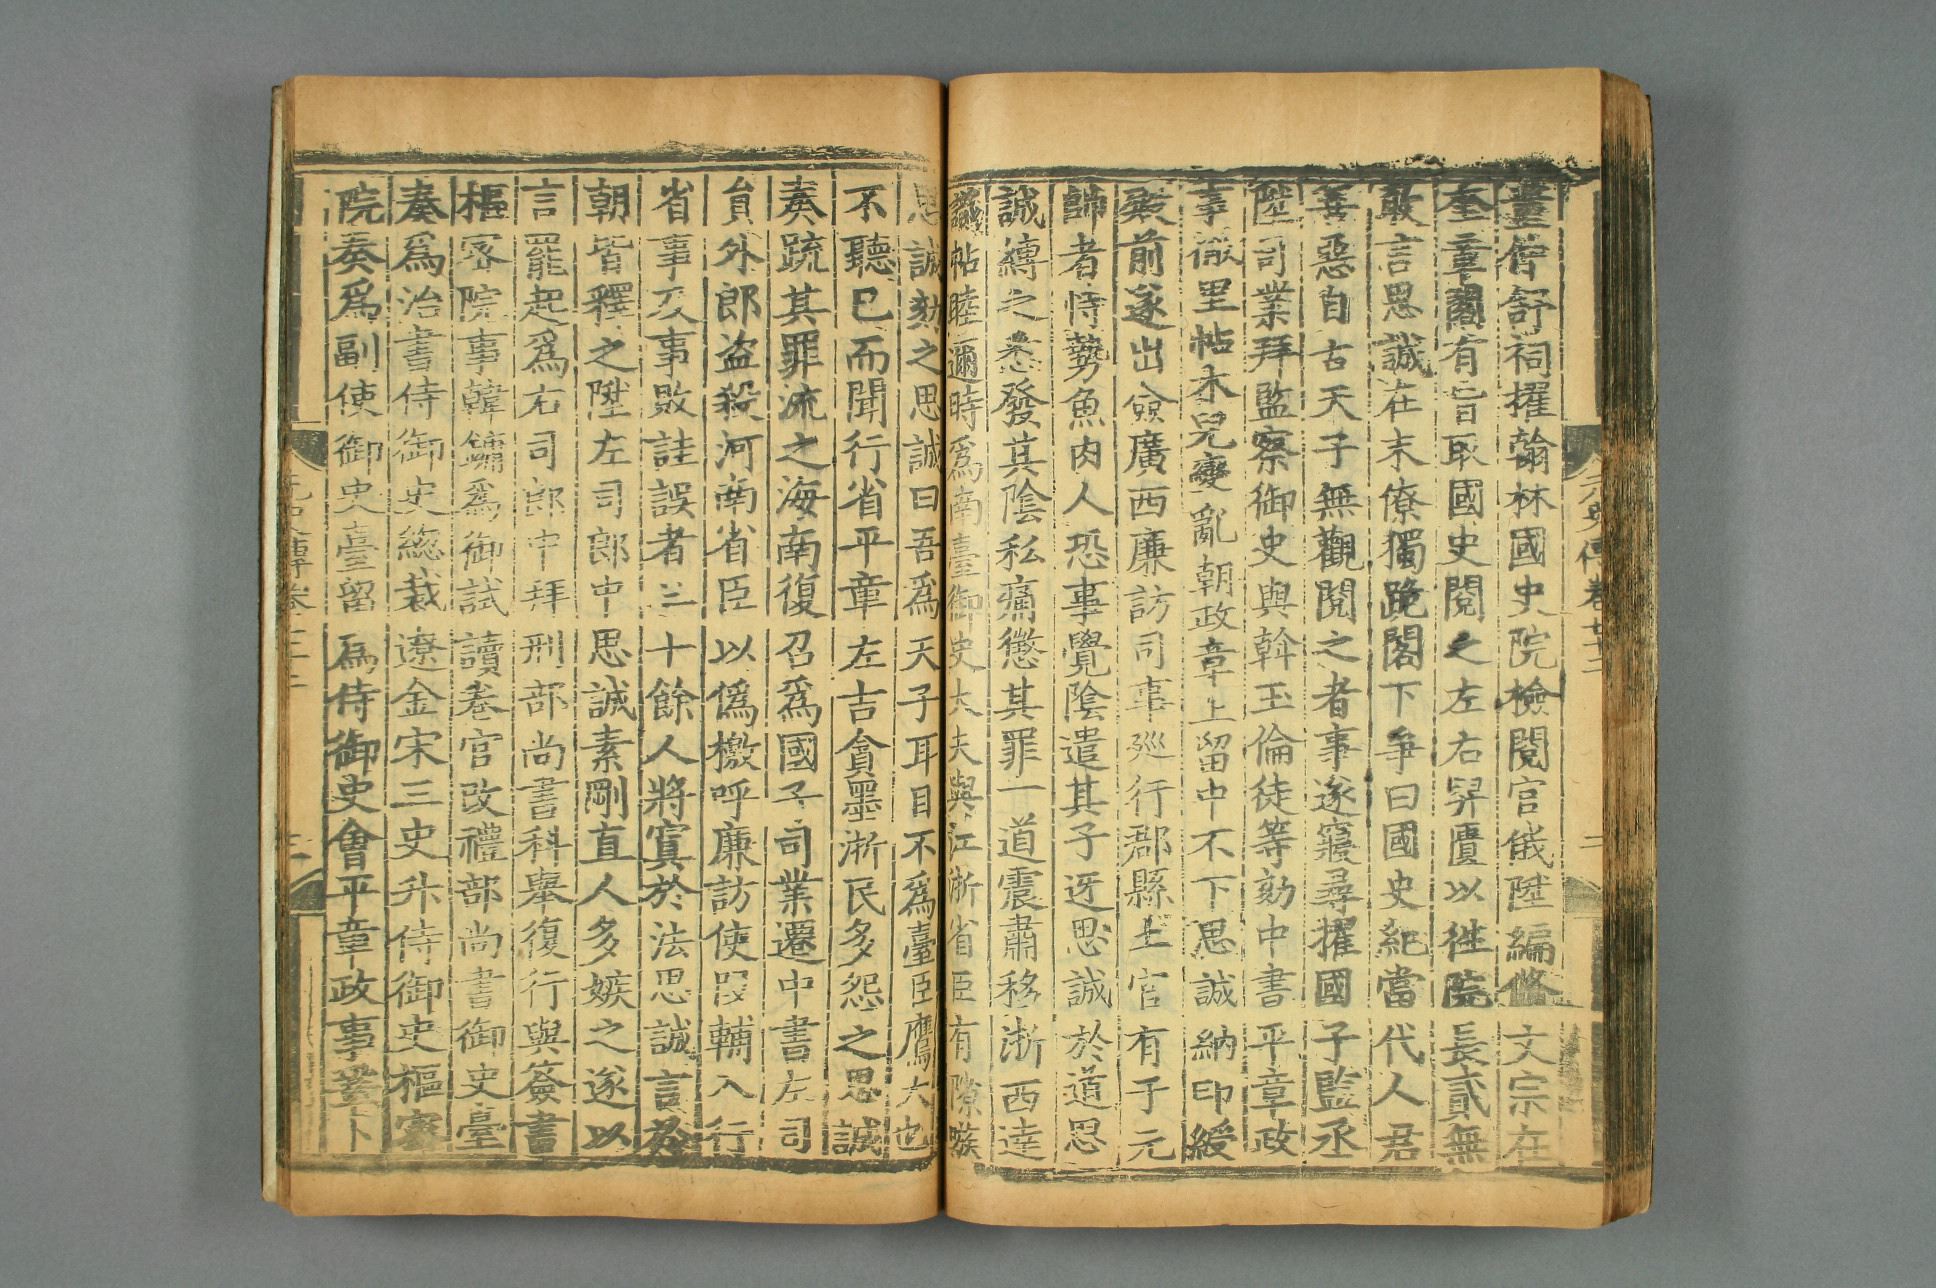 元史傳卷七十二
臺管舒祠擢翰林國史院檢閱官俄陞編修文宗在
奎章閣有旨取國史閱之左右舁匱以徃院長貳無
敢言思誠在末僚獨跪閣下爭曰國史紀當代人君
善惡自古天子無觀閱之者事遂寢尋擢國子監丞
陞司業拜監察御史與斡玉倫徒等劾中書平章政
事徹里帖木兒變亂朝政章上留中不下思誠納印綬
殿前遂出僉廣西廉訪司事廵行郡縣土官有于元
帥者恃勢魚肉人恐事覺陰遣其子迓思誠於道思
誠縛之悉發其陰私痛懲其罪一道震肅移浙西達
識帖睦邇時爲南臺御史大夫與江浙省臣有隙嗾
思誠劾之思誠曰吾爲天子耳目不爲臺臣鷹犬也
不聽已而聞行省平章左吉貪墨浙民多怨之思誠
奏疏其罪流之海南復召爲國子司業遷中書左司
貟外郎盗殺河南省臣以僞檄呼廉訪使叚輔入行
省事及事敗詿誤者三十餘人將寘於法思誠言於
朝皆釋之陞左司郎中思誠素剛直人多嫉之遂以
言罷起爲右司郎中拜刑部尚書科舉復行與簽書
樞密院事韓鏞爲御試讀卷官改禮部尚書御史臺
奏爲治書侍御史緫裁遼金宋三史升侍御史樞密
院奏爲副使御史臺留爲侍御史會平章政事鞏卜
元史傳卷七十二